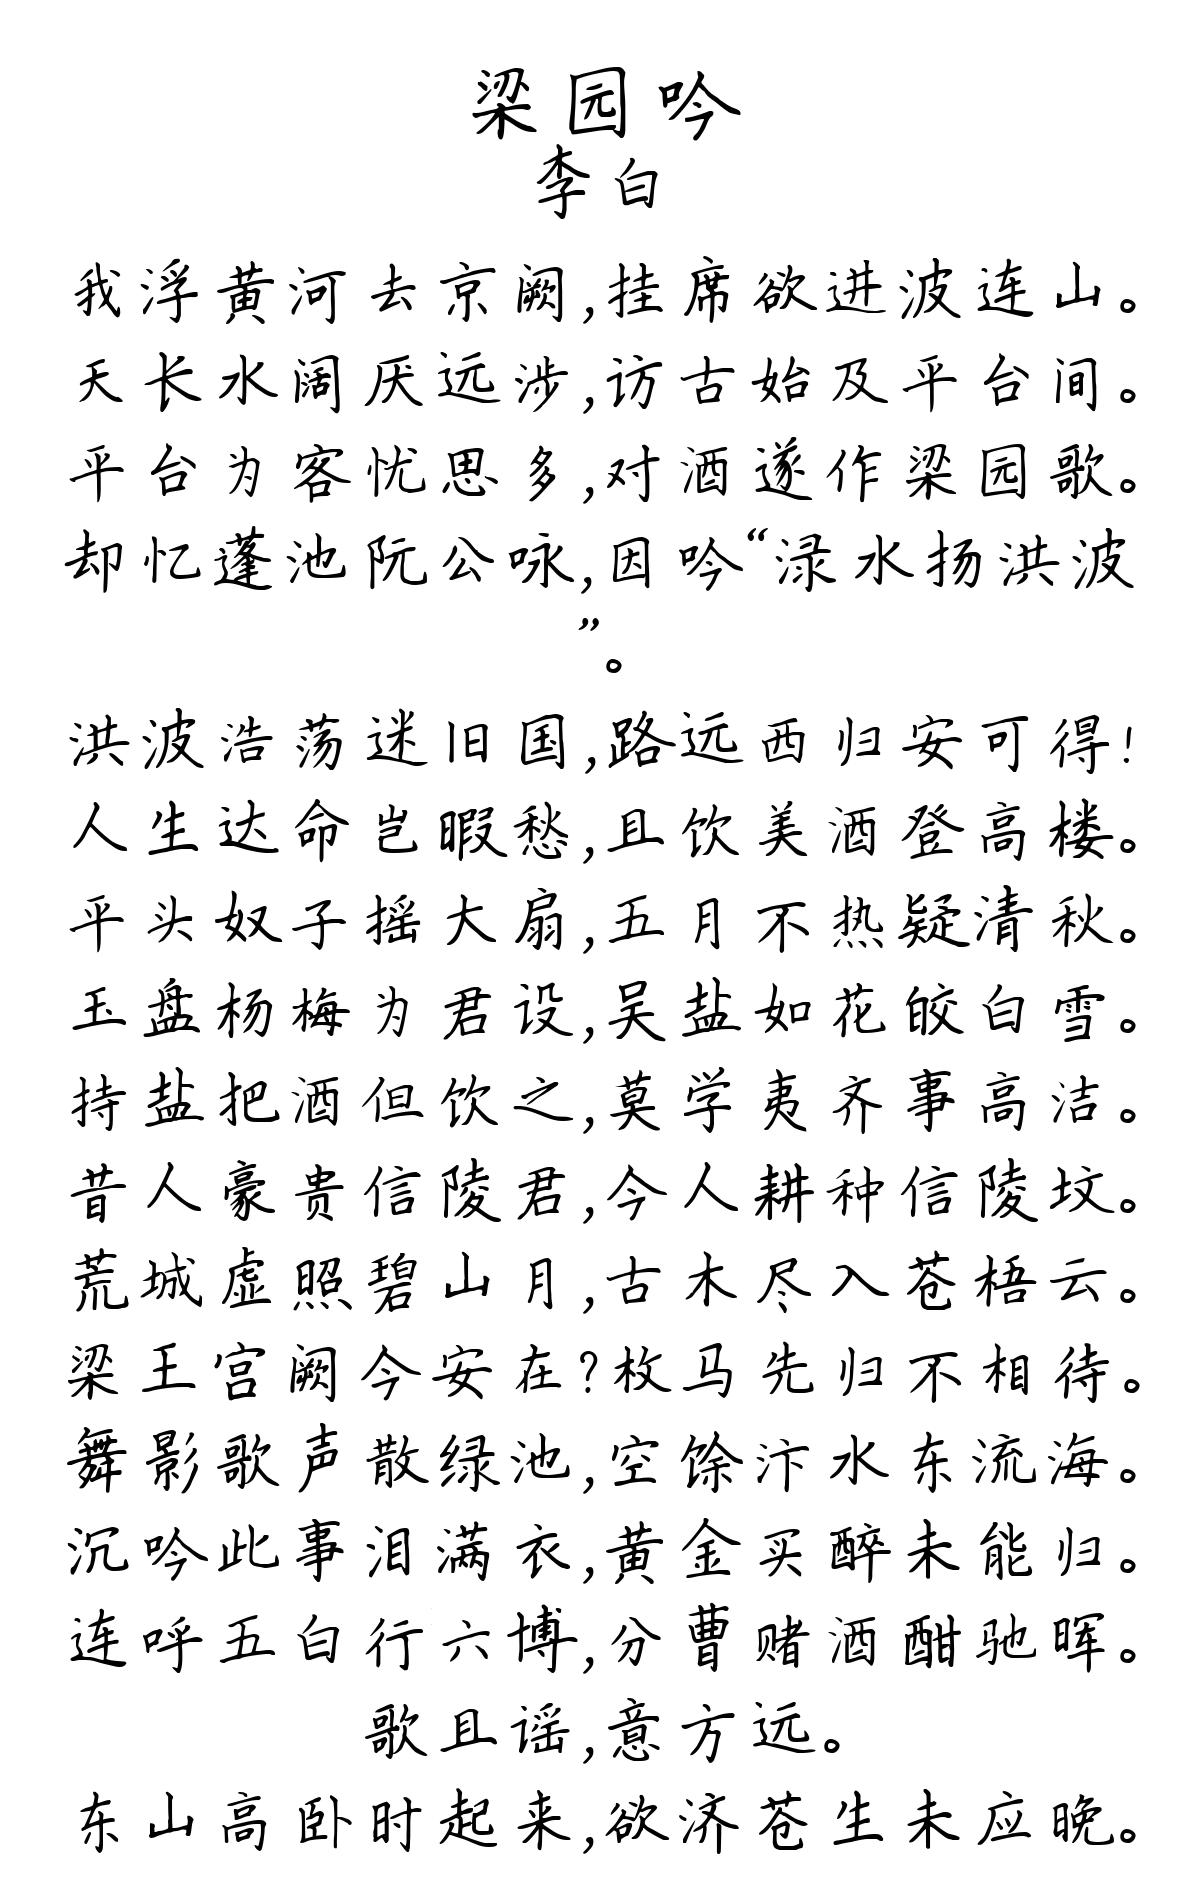 梁园吟
李白
我浮黄河去京阙,挂席欲进波连山。
天长水阔厌远涉,访古始及平台间。
平台为客忧思多,对酒遂作梁园歌。
却忆蓬池阮公咏,因吟“渌水扬洪波
”。
洪波浩荡迷旧国,路远西归安可得!
人生达命岂暇愁,且饮美酒登高楼。
平头奴子摇大扇,五月不热疑清秋。
玉盘杨梅为君设,吴盐如花皎白雪。
持盐把酒但饮之,莫学夷齐事高洁。
昔人豪贵信陵君,今人耕种信陵坟。
荒城虚照碧山月,古木尽入苍梧云。
梁王宫阙今安在?枚马先归不相待。
舞影歌声散绿池,空馀汴水东流海。
沉吟此事泪满衣,黄金买醉未能归。
连呼五白行六博,分曹赌酒酣驰晖。
歌且谣,意方远。
东山高卧时起来,欲济苍生未应晚。